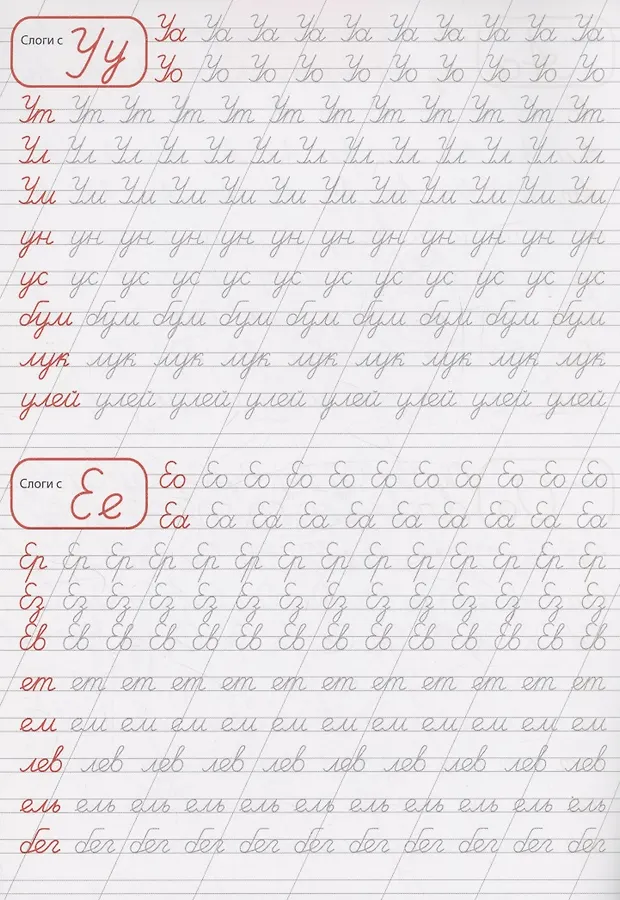 Слоги с Уу
Уа Уа Уа Уа Уа Уа Уа Уа Уа Уа
Уо Уо Уо Уо Уо Уо Уо Уо Уо Уо
Ут Ут Ут Ут Ут Ут Ут Ут Ут Ут Ут Ут
Ул Ул Ул Ул Ул Ул Ул Ул Ул Ул Ул Ул Ул
Ум Ум Ум Ум Ум Ум Ум Ум Ум Ум Ум Ум
ун ун ун ун ун ун ун ун ун ун ун ун
ус ус ус ус ус ус ус ус ус ус ус ус
бум бум бум бум бум бум бум бум бум
лук лук лук лук лук лук лук лук лук
улей улей улей улей улей улей улей улей
Слоги с Ее
Ео Ео Ео Ео Ео Ео Ео Ео Ео Ео Ео
Еа Еа Еа Еа Еа Еа Еа Еа Еа Еа
Ер Ер Ер Ер Ер Ер Ер Ер Ер Ер Ер Ер Ер Ер
Ез Ез Ез Ез Ез Ез Ез Ез Ез Ез Ез Ез Ез Ез
Ев Ев Ев Ев Ев Ев Ев Ев Ев Ев Ев Ев Ев Ев
ет ет ет ет ет ет ет ет ет ет ет ет
ем ем ем ем ем ем ем ем ем ем ем ем
лев лев лев лев лев лев лев лев лев лев
ель ель ель ель ель ель ель ель ель ель ель
бег бег бег бег бег бег бег бег бег бег бег